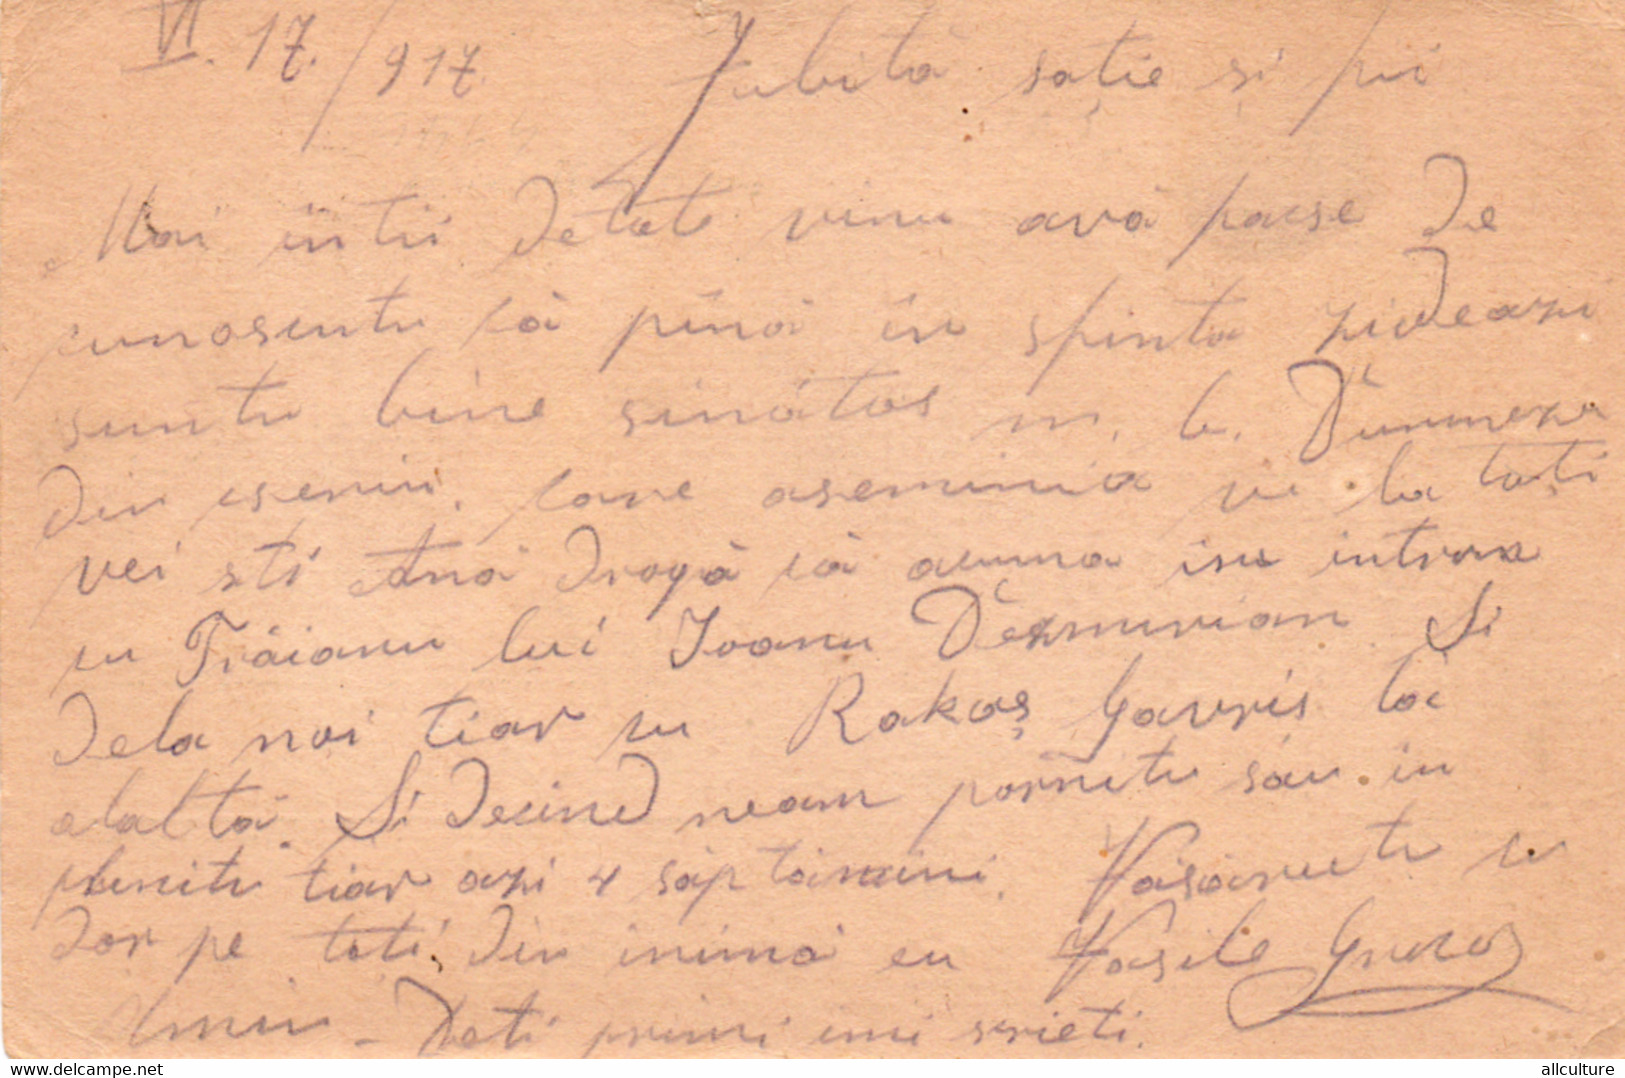 VI. 17./917. Iubită soție și pui
Mai întîi de tote vinu avă face de
cunoscutu că pînă în sfinta zideazi
suntu bine sinătos m. l. Dumneze
din ceriu. care aseminia vi la toți
vei sti Ană dragă că acuma isu intruna
cu Trăianu lui Ioanu Dezmirian Si
dela noi tiar cu Rakoș Gavris la
olaltă. Si decind neam pornitu sau in
plinitu tiar azi 4 săptămini. Vă sărutu cu
dor pe toti din inimă eu Vasile
Amin - Deti primi imi scrieti.
hip.net
allculture